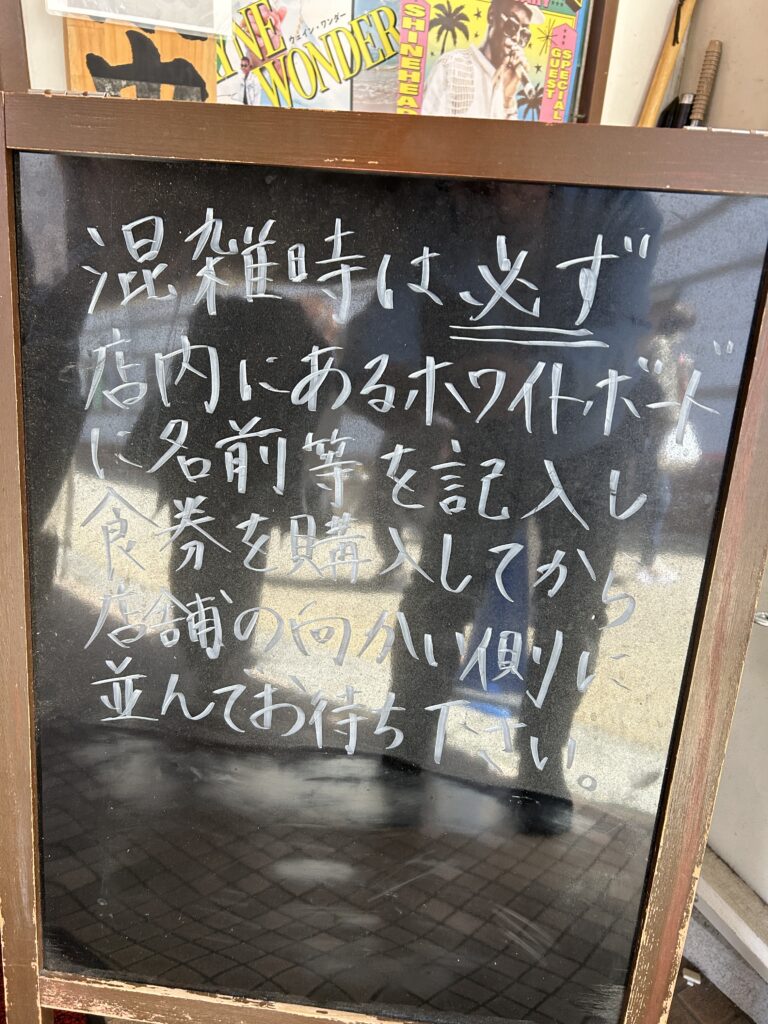 YNE
WONDER
ウェイン・ワンダー
SHINEHEAD
SPECIAL
GUEST
混雑時は必ず
店内にあるホワイトボード
に名前等を記入し
食券を購入してから
店舗の向かい側に
並んでお待ち下さい。